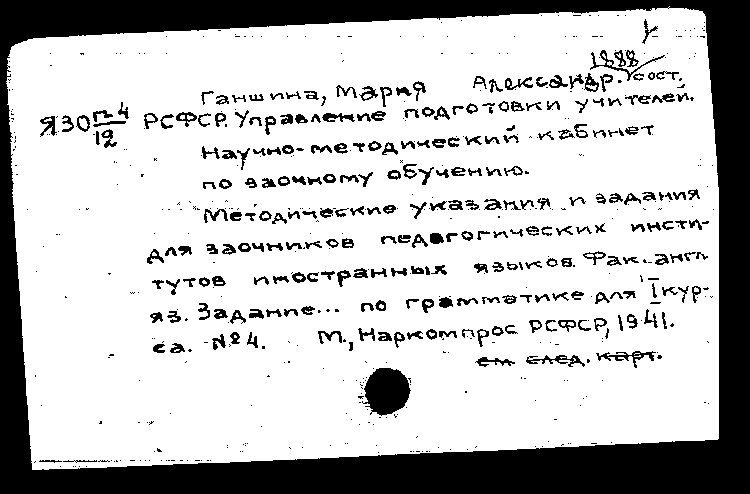 1888
Ганшина, Мария Александр. сост.
Я30 П-4/12 РСФСР. Управление подготовки учителей.
Научно-методический кабинет
по заочному обучению.
Методические указания и задания
для заочников педагогических инсти-
тутов иностранных языков. Фак. англ.
яз. Задание... по грамматике для I кур-
са. №4. М., Наркомпрос РСФСР, 1941.
см. след. карт.